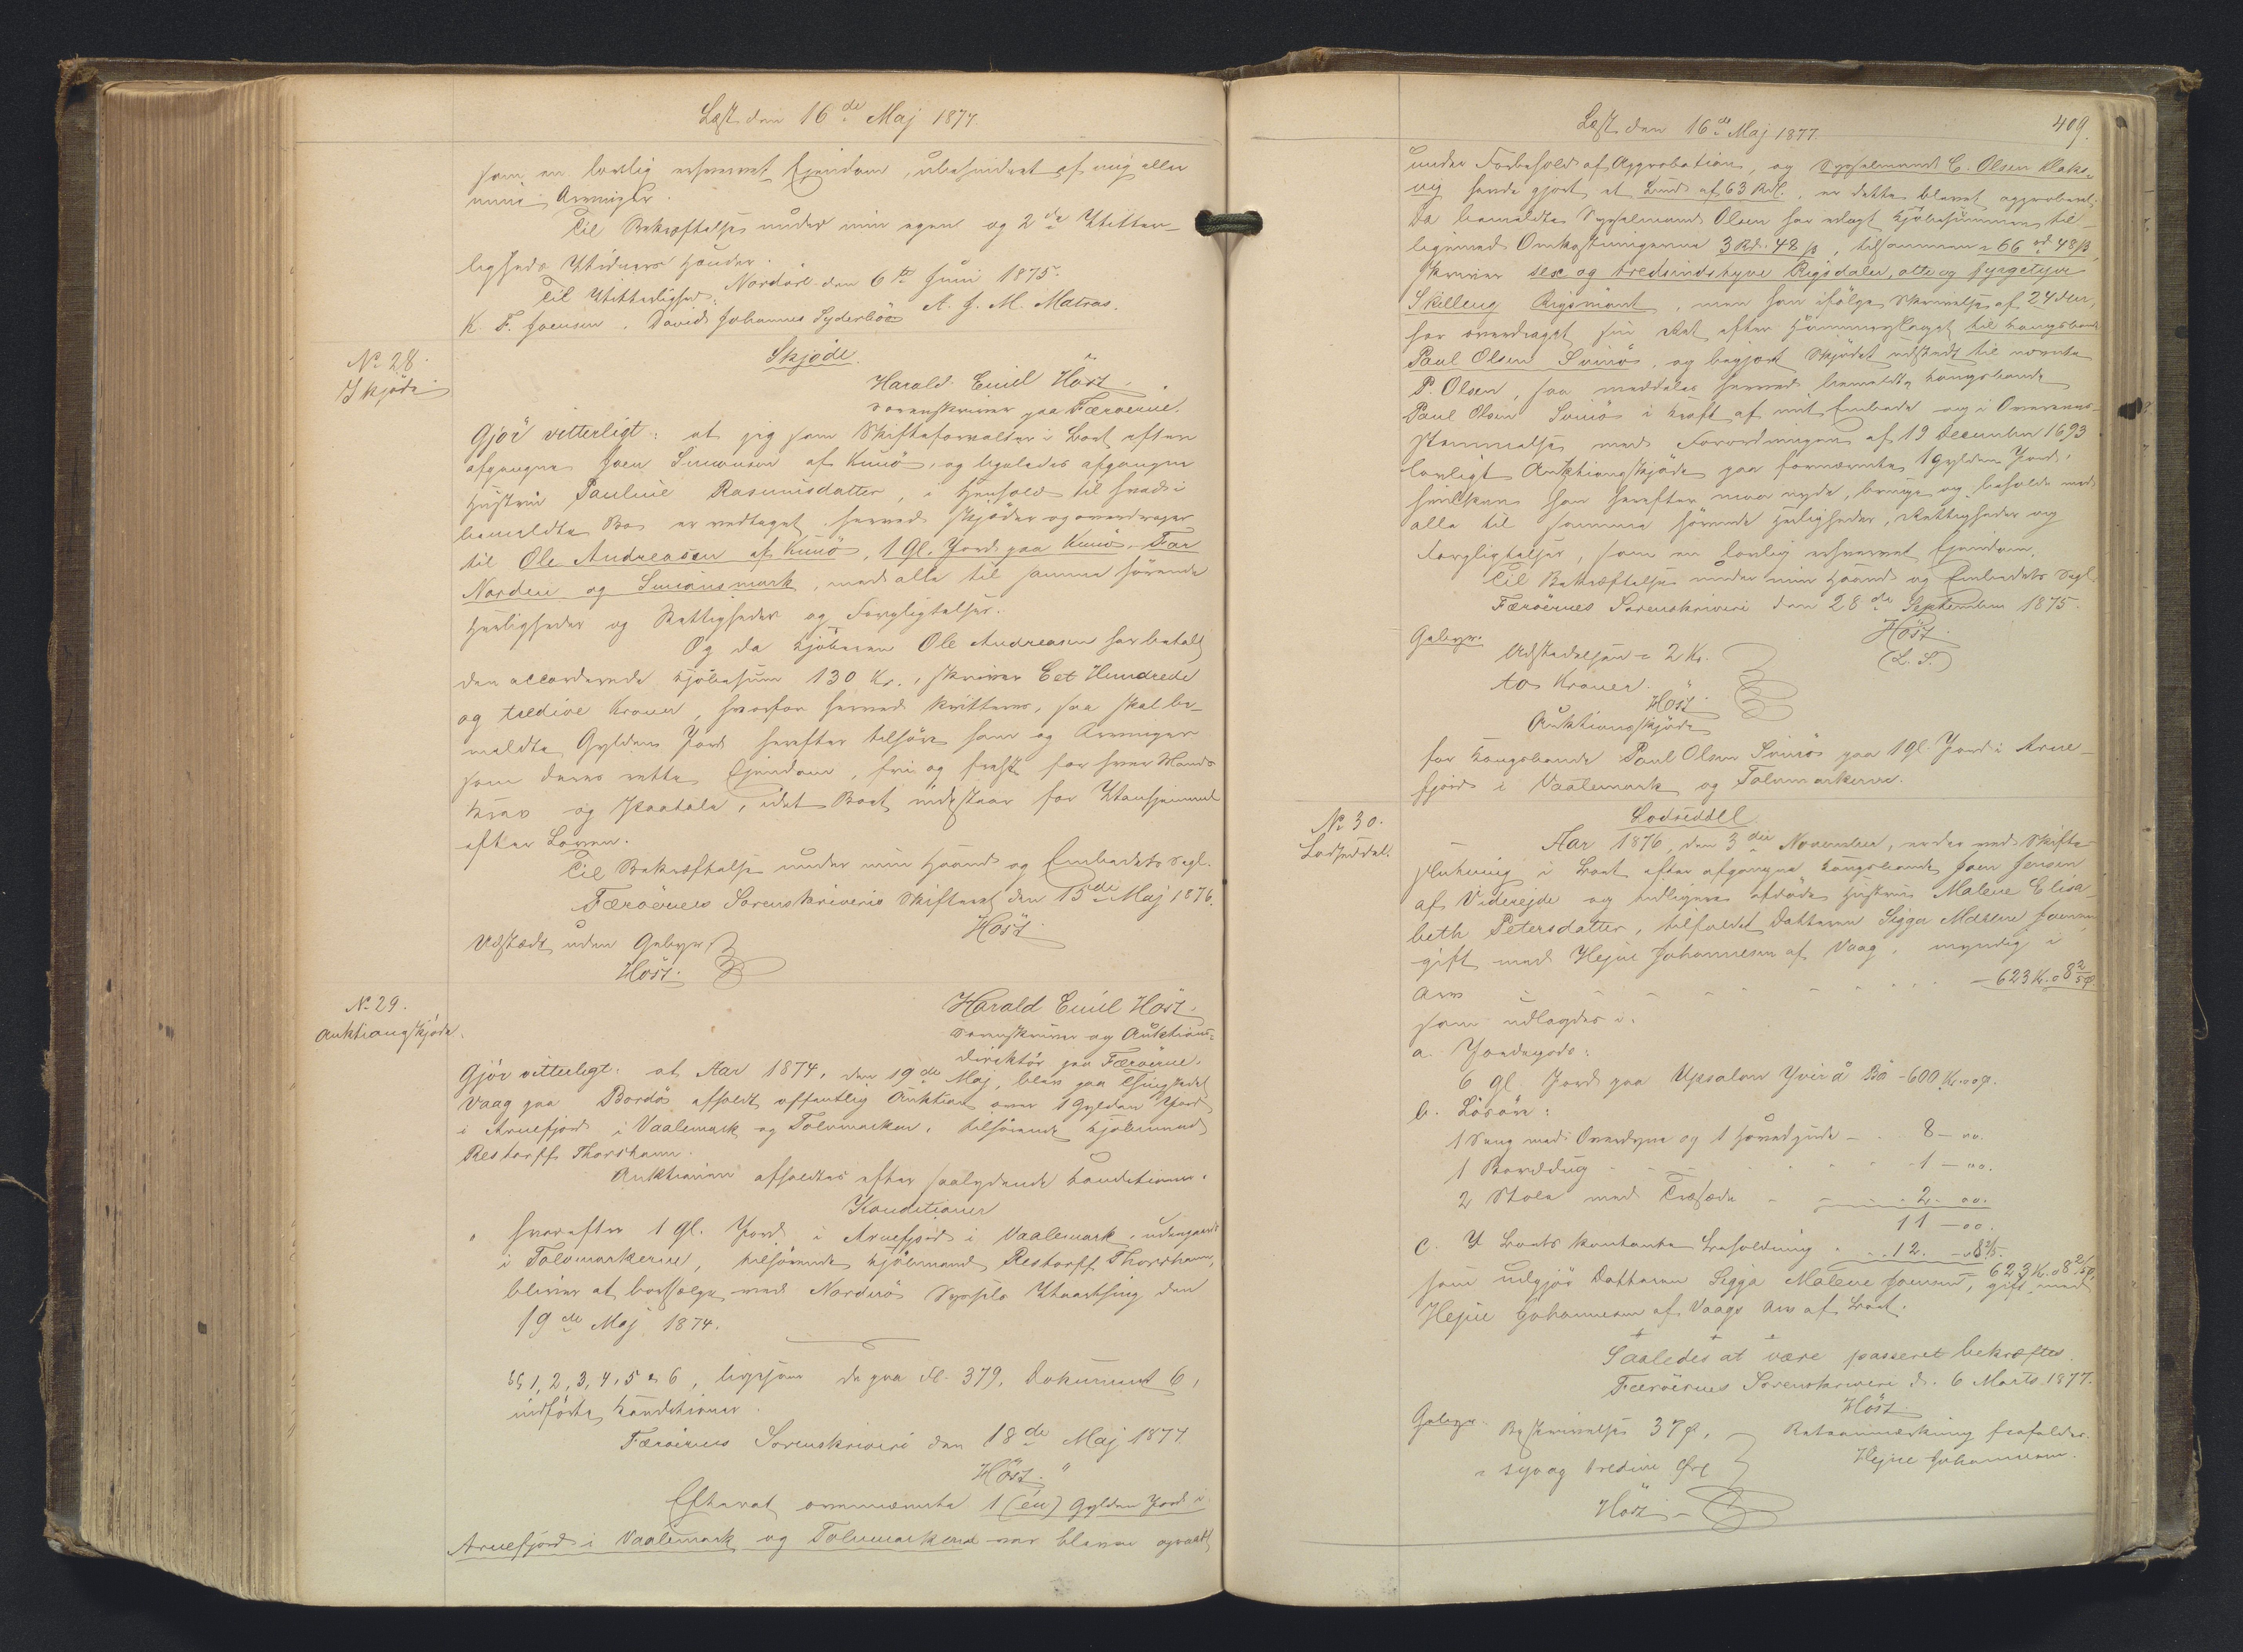 Læst den 16de Maj 1877.
som en lovlig erhvervet Ejendom, ubehindret af mig eller
mine Arvinger.
Til Bekræftelse under min egen og 2de Vitter-
ligheds Vidners Hænder.
Nordöre den 6te Juni 1875.
Til Vitterlighed: A. J. M. Matras.
K. F. Joensen. David Johannes Syderbö
No 28.
Skjöde
Skjøde.
Harald Emil Höst,
Sorenskriver paa Færoerne.
Gjör vitterligt: at jeg som Skifteforvalter i Boet efter
afgangne Joen Simonsen af Kunö, og ligeledes afgangne
Hustru Pauline Rasmusdatter, i Henhold til hvad i
bemeldte Bo er vedtaget, herved skjöder og overdrager
til Ole Andreasen af Kunö, 1 Gl. Jord paa Kunö, Far
Norderi og Simonsmark, med alle til samme hörende
Herligheder og Rettigheder og Forpligtelser.
Og da Kjöberen Ole Andreasen har betalt
den accorderede Kjöbesum 130 Kr., skriver Eet Hundrede
og tredive Kroner, hvorfor herved kvitteres, saa skal be-
meldte Gylden Jord herefter tilhöre ham og Arvinger
som deres rette Ejendom, fri og frelst for hver Mands
Krav og Paatale, idet Boet indestaar for Vanhjemmel
efter Loven.
Til Bekræftelse under min Haand og Embedets Segl.
Færöernes Sorenskriveris Skifteret den 15de Maj 1876.
Höst
Udstædt uden Gebyr
Höst.
No 29.
Auktionsskjöde.
Harald Emil Höst,
Sorenskriver og Auktions-
direktör paa Færöerne.
Gjör vitterligt: at Aar 1874, den 19de Maj, blev paa Thingstedet
Vaag paa Bordö afholdt offentlig Auktion over 1 Gylden Jord
i Arnefjord i Vaalemark og Tolvmarken, tilhörende Kjöbmand
Restorff, Thorshavn.
Auktionen afholdtes efter saalydende Konditioner.
Konditioner
" hvorefter 1 Gl. Jord i Arnefjord i Vaalemark,
i Tolvmarkerne, tilhörende Kjöbmand Restorff, Thorshavn,
bliver at bortsælge ved Norderö Syssels Vaarthing den
19de Maj 1874.
§§ 1, 2, 3, 4, 5 & 6, ligesom de paa Fl. 379, Dokument 6,
indförte Konditioner.
Færöernes Sorenskriveri den 18de Maj 1874
Höst. "
Efterat ovennævnte 1 (een) Gylden Jord i
Arnefjord i Vaalemark og Tolvmarkerne var bleven opraabt
Læst den 16de Maj 1877.
409.
under Forbehold af Approbation, og Sysselmand C. Olsen Klaks-
vig havde gjort et Bud af 63 Rdl., er dette blevet approberet.
Da bemeldte Sysselmand Olsen har erlagt Kjöbesummen til-
ligemed Omkostningerne 3 Rd. 48 ß, tilsammen 66 rd 48 ß,
skriver sex og tredsindstyve Rigsdaler, otte og fyrgetyve
Skilling Rigsmönt, men han ifölge Skrivelse af 24de
har overdraget sin Ret efter Hammerslaget til Kongsbonde
Paul Olsen Svinö, og begjært Skjödet udstædt til nævnte
P. Olsen, saa meddeles herved bemeldte Kongsbonde
Paul Olsen Svinö i Kraft af mit Embede og i Overens-
stemmelse med Forordningen af 19 December 1693
lovligt Auktionsskjöde paa fornævnte 1 Gylden Jord,
hvilken han herefter maa nyde, bruge og beholde med
alle til samme hörende Herligheder, Rettigheder og
Forpligtelser, som en lovlig erhvervet Ejendom.
Til Bekræftelse under min Haand og Embedets Segl.
Færöernes Sorenskriveri den 28de September 1875.
Höst
(L. S.)
Gebyr.
Udstædelsen = 2 Kr.
to Kroner.
Höst
Auktionsskjöde
for Kongsbonde Paul Olsen Svinö paa 1 Gl. Jord i Arne-
fjord i Vaalemark og Tolvmarkerne.
No 30.
Lodseddel.
Lodseddel.
Aar 1876, den 3die November, er der ved Skifte-
slutning i Boet efter afgangne Kongsbonde Joen Jensen
af Viderejde og tidligere afdöde Hustru Malene Elisa-
beth Petersdatter, tilfaldet Datteren Sigga Malene Joensen,
gift med Hejne Johannesen af Vaag, myndig i
Arv - 623 Kr. 08 2/5 Ø.
som udlagdes i:
a. Jordegods:
6 Gl. Jord paa Upsalen Yvir å Bö - 600 Kr. 00 ø.
b. Lösöre:
1 Seng med Overdyne og 1 Hovedpude - 8 - 00.
1 Borddug - 1 - 00.
2 Stole med Træsæde - 2 - 00.
11 - 00.
c. I Boets kontante Beholdning - 12 - 08 2/5.
623 Kr. 08 2/5 Ø.
som udgjör Datteren Sigga Malene Joensen, gift med
Hejne Johannesen af Vaags Arv af Boet.
Saaledes at være passeret bekræftes.
Færöernes Sorenskriveri d. 6 Marts 1877.
Höst
Gebyr.
Beskrivelse 37 Ø. Retsanmærkning frafaldes.
" syv og tredive Øre Hejne Johannesen.
Höst